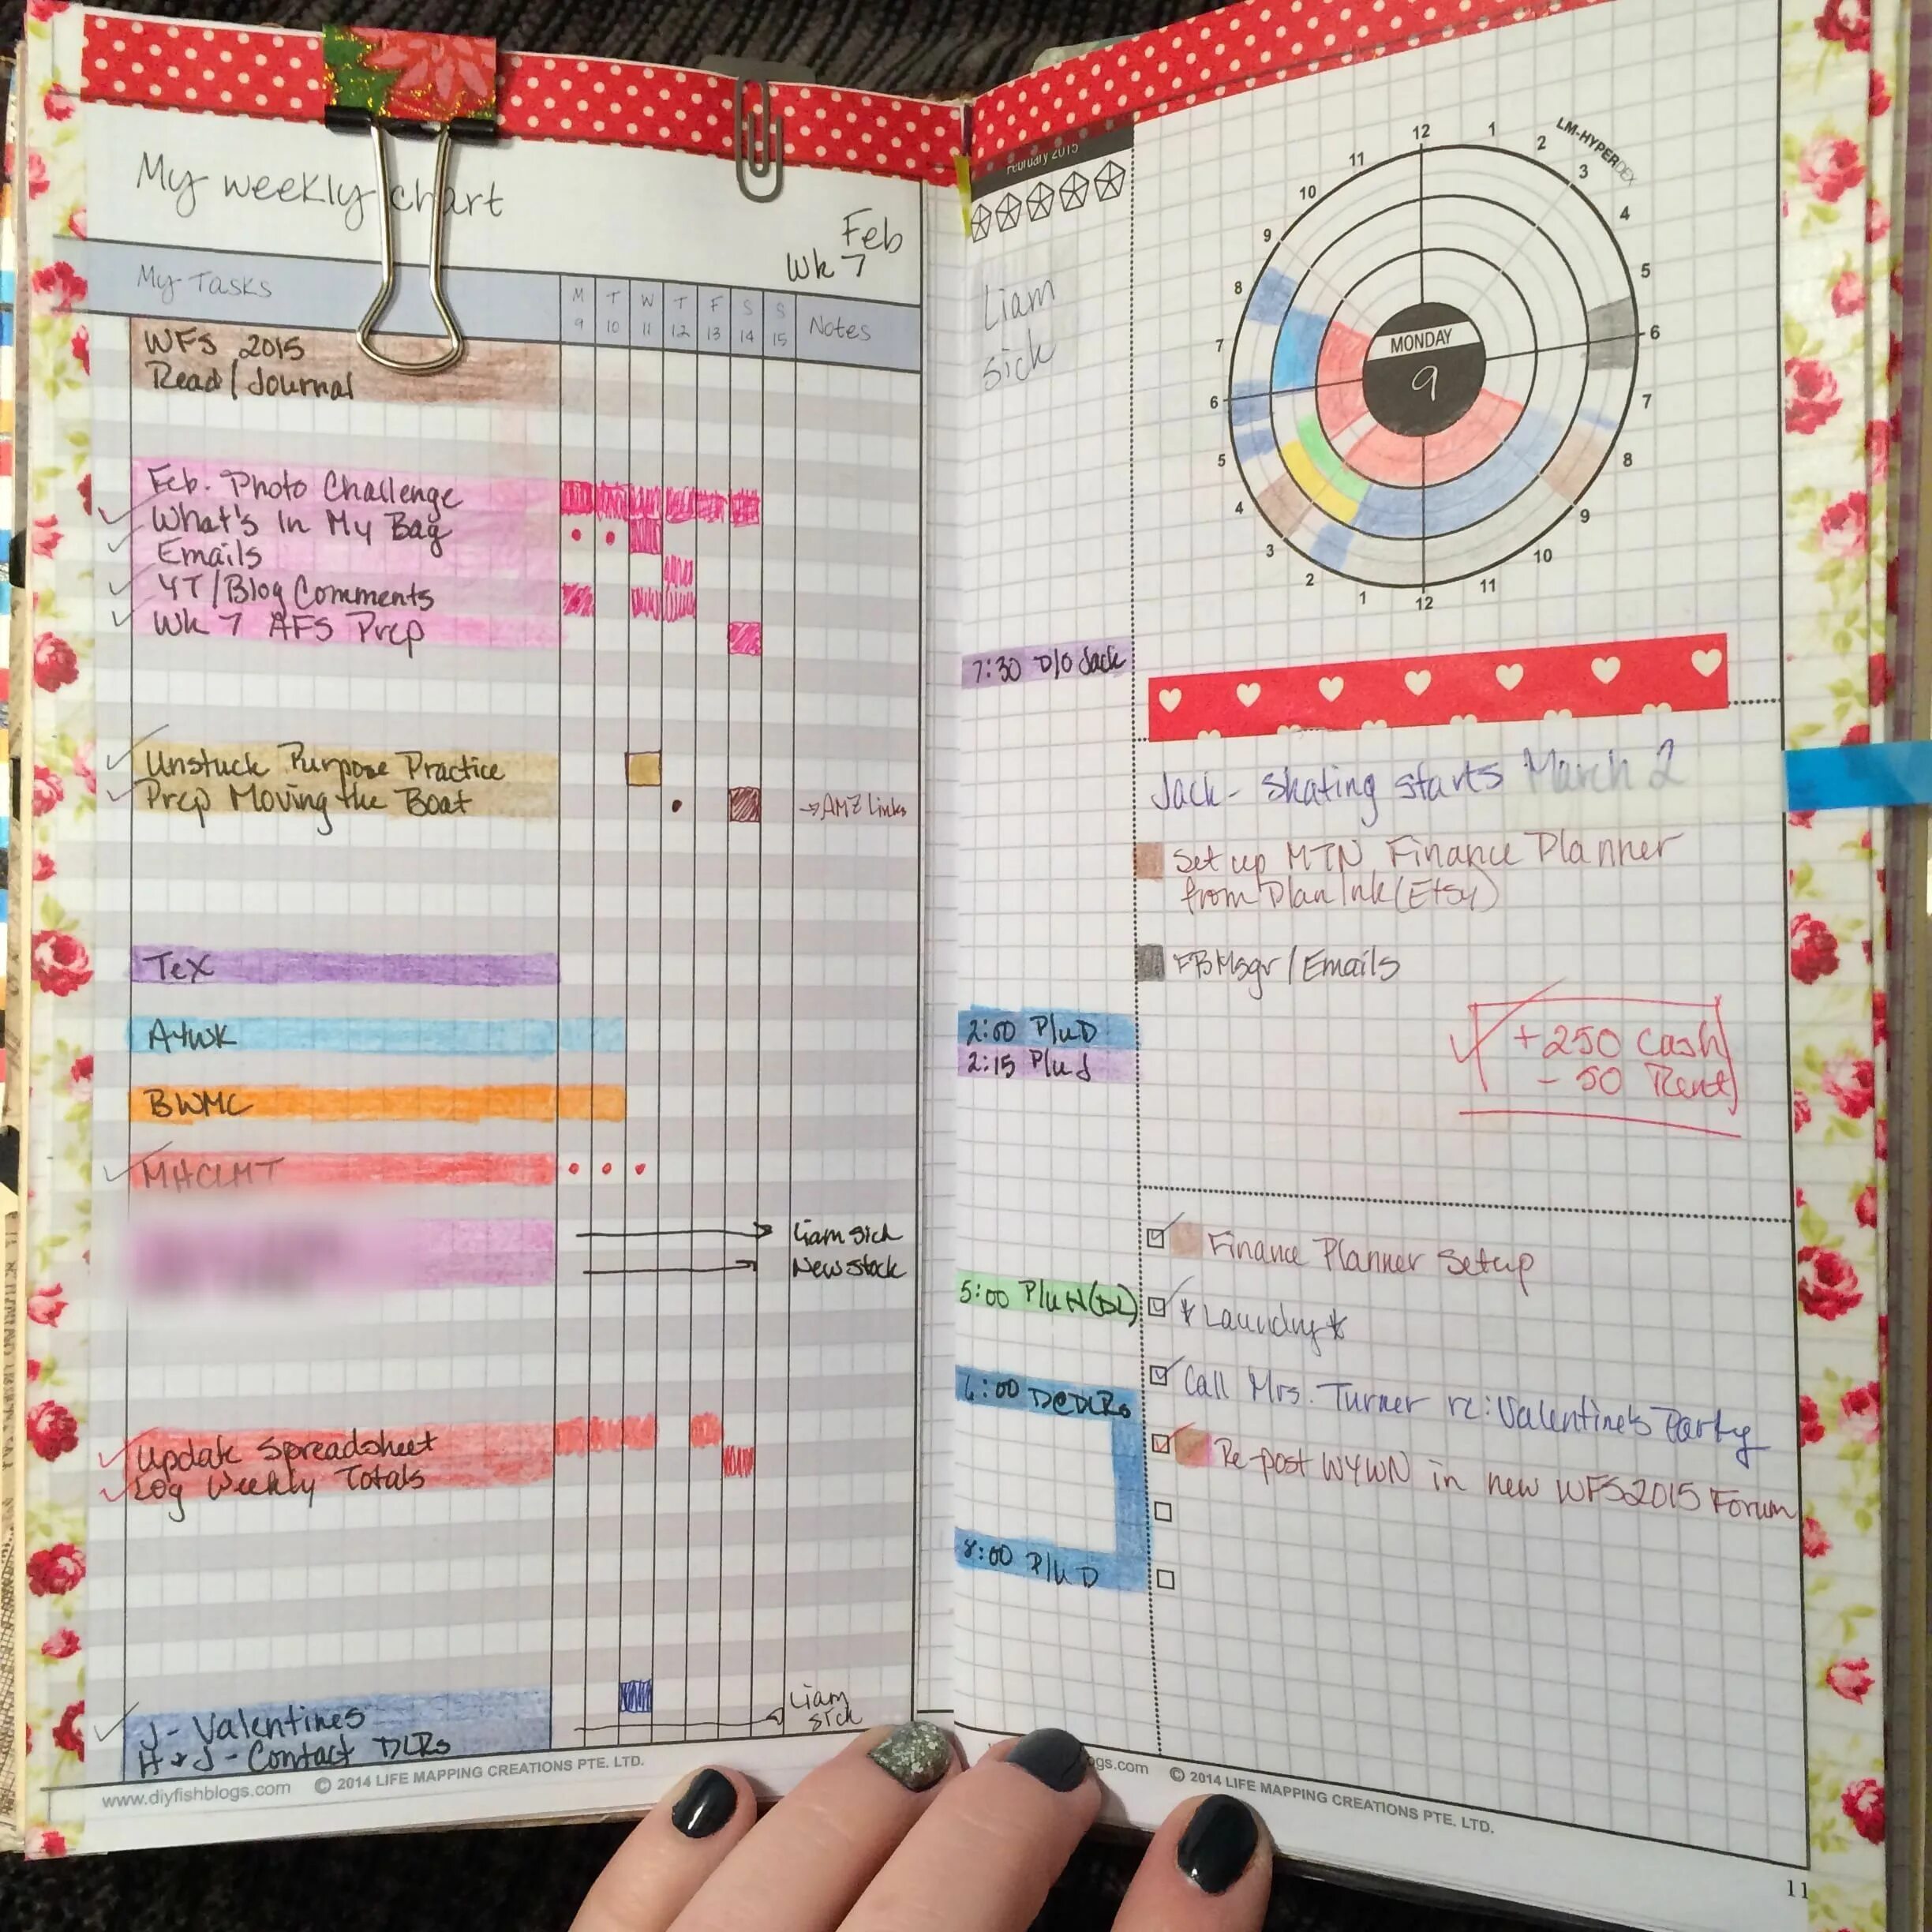 My weekly chart
Feb
Wk 7
My Tasks
M T W T F S S
9 10 11 12 13 14 15
Notes
WFS 2015
Read/Journal
Feb. Photo Challenge
What's In My Bag
Emails
YT/Blog Comments
Wk 7 AFS Prep
Unstuck Purpose Practice
Prep Moving the Boat
→AMZ Links
TeX
A4WK
BWMC
MHCLMT
Liam sick
New stock
Update Spreadsheet
Log Weekly Totals
J- Valentines
H+J - Contact DLRs
Liam
sick
www.diyfishblogs.com © 2014 LIFE MAPPING CREATIONS PTE. LTD.
February 2015
Liam
sick
LM-HYPERDEX
12 1 2 3 4 5 6 7 8 9 10 11 12 1 2 3 4 5 6 7 8 9 10 11
MONDAY
9
7:30 D/O Jack
2:00 P/u D
2:15 P/u J
5:00 P/u H(DL)
6:00 D@DLRs
8:00 P/u D
Jack- skating starts March 2
Set up MTN Finance Planner
from Plan Ink (Etsy)
FB Msgr/Emails
+250 Cash
- 50 Rent
Finance Planner Setup
*Laundry*
Call Mrs. Turner re: Valentine's Party
Re-post WYWN in new WFS2015 Forum
ogs.com © 2014 LIFE MAPPING CREATIONS PTE. LTD.
11